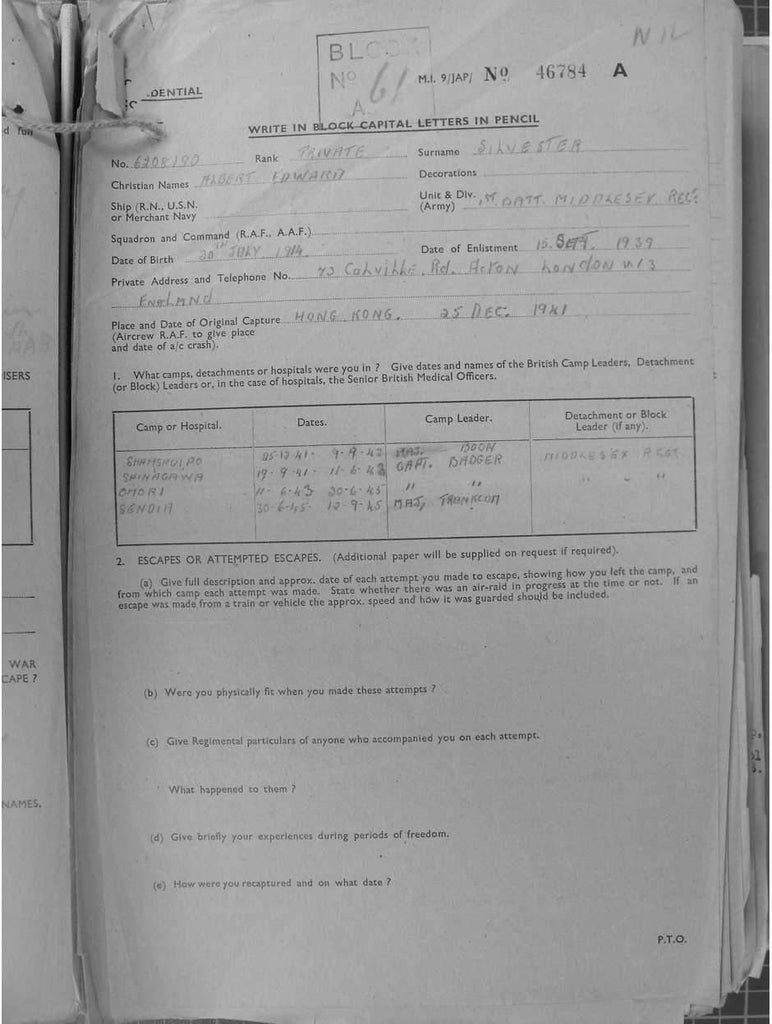 NIL
BLOCK
No 61
A.
M.I. 9/JAP/ No. 46784 A
DENTIAL
WRITE IN BLOCK CAPITAL LETTERS IN PENCIL
No. 6208190 Rank PRIVATE Surname SILVESTER
Christian Names ALBERT EDWARD Decorations
Ship (R.N., U.S.N. or Merchant Navy
Unit & Div. (Army) 1ST. BATT. MIDDLESEX REG.
Squadron and Command (R.A.F., A.A.F.)
Date of Birth 20TH JULY 1914. Date of Enlistment 15. SEPT. 1939
Private Address and Telephone No. 73 Colville. Rd. ACTON LONDON W/3
ENGLAND
Place and Date of Original Capture HONG KONG. 25 DEC. 1941
(Aircrew R.A.F. to give place
and date of a/c crash).
1. What camps, detachments or hospitals were you in ? Give dates and names of the British Camp Leaders, Detachment
(or Block) Leaders or, in the case of hospitals, the Senior British Medical Officers.
Camp or Hospital. Dates. Camp Leader. Detachment or Block Leader (if any).
SHAMSHUIPO 25-12-41 - 9-9-42 MAJ. BOON MIDDLESEX REGT
SHINAGAWA 19-9-41 - 11-6-43 CAPT. BADGER " " "
OMORI 11-6-43 30-6-45 " "
SENDIA 30-6-45- 12-9-45 MAJ, FRANKCOM
2. ESCAPES OR ATTEMPTED ESCAPES. (Additional paper will be supplied on request if required).
(a) Give full description and approx. date of each attempt you made to escape, showing how you left the camp, and
from which camp each attempt was made. State whether there was an air-raid in progress at the time or not. If an
escape was made from a train or vehicle the approx. speed and how it was guarded should be included.
(b) Were you physically fit when you made these attempts ?
(c) Give Regimental particulars of anyone who accompanied you on each attempt.
What happened to them ?
(d) Give briefly your experiences during periods of freedom.
(e) How were you recaptured and on what date ?
P.T.O.
d full
ISERS
WAR
CAPE ?
NAMES.